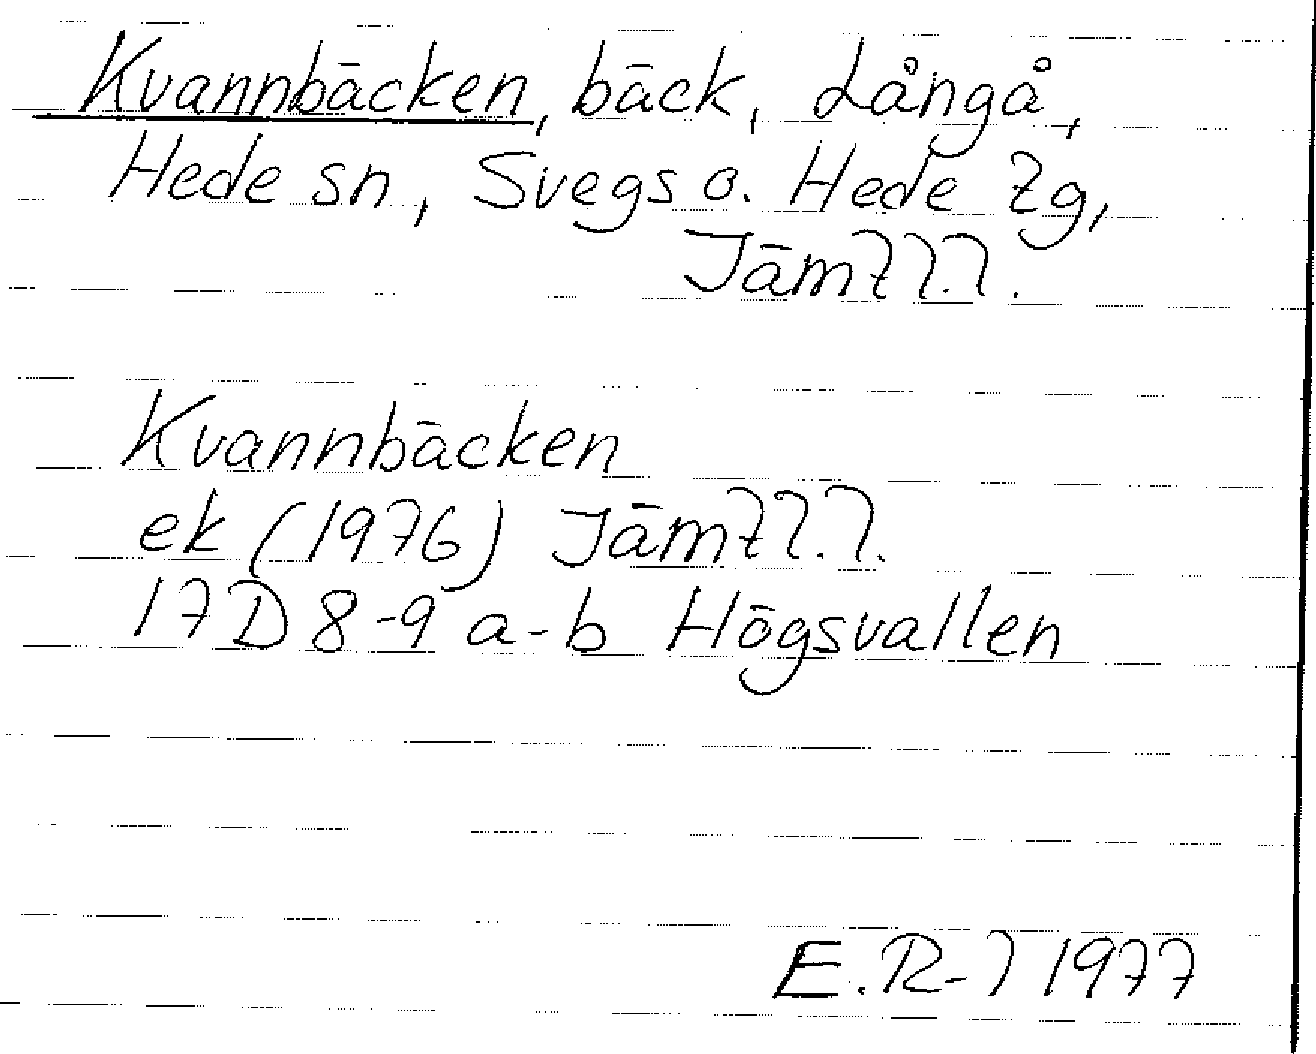 Kvannbäcken, bäck, Långå,
Hede sn, Svegs o. Hede tg,
Jämtl. l.
Kvannbäcken
ek (1976) Jämtl. l.
17D 8-9 a-b Högsvallen
E. R-l 1977